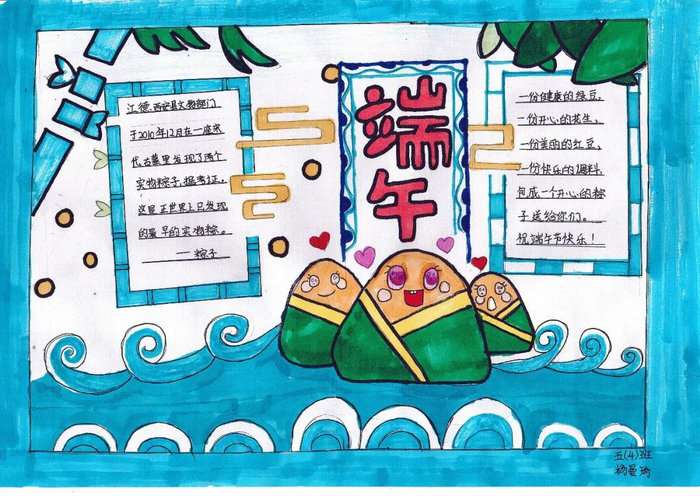 端午
江德西安县文物部门
于2010年12月在一座宋
代古墓里发现了两个
实物粽子,据考证,
世界上只发现
的最早的实物粽。
——粽子
一份健康的绿豆,
一份开心的花生,
一份美丽的红豆,
一份快乐的调料
包成一个开心的粽
子送给你们。
祝端午节快乐!
五(4)班